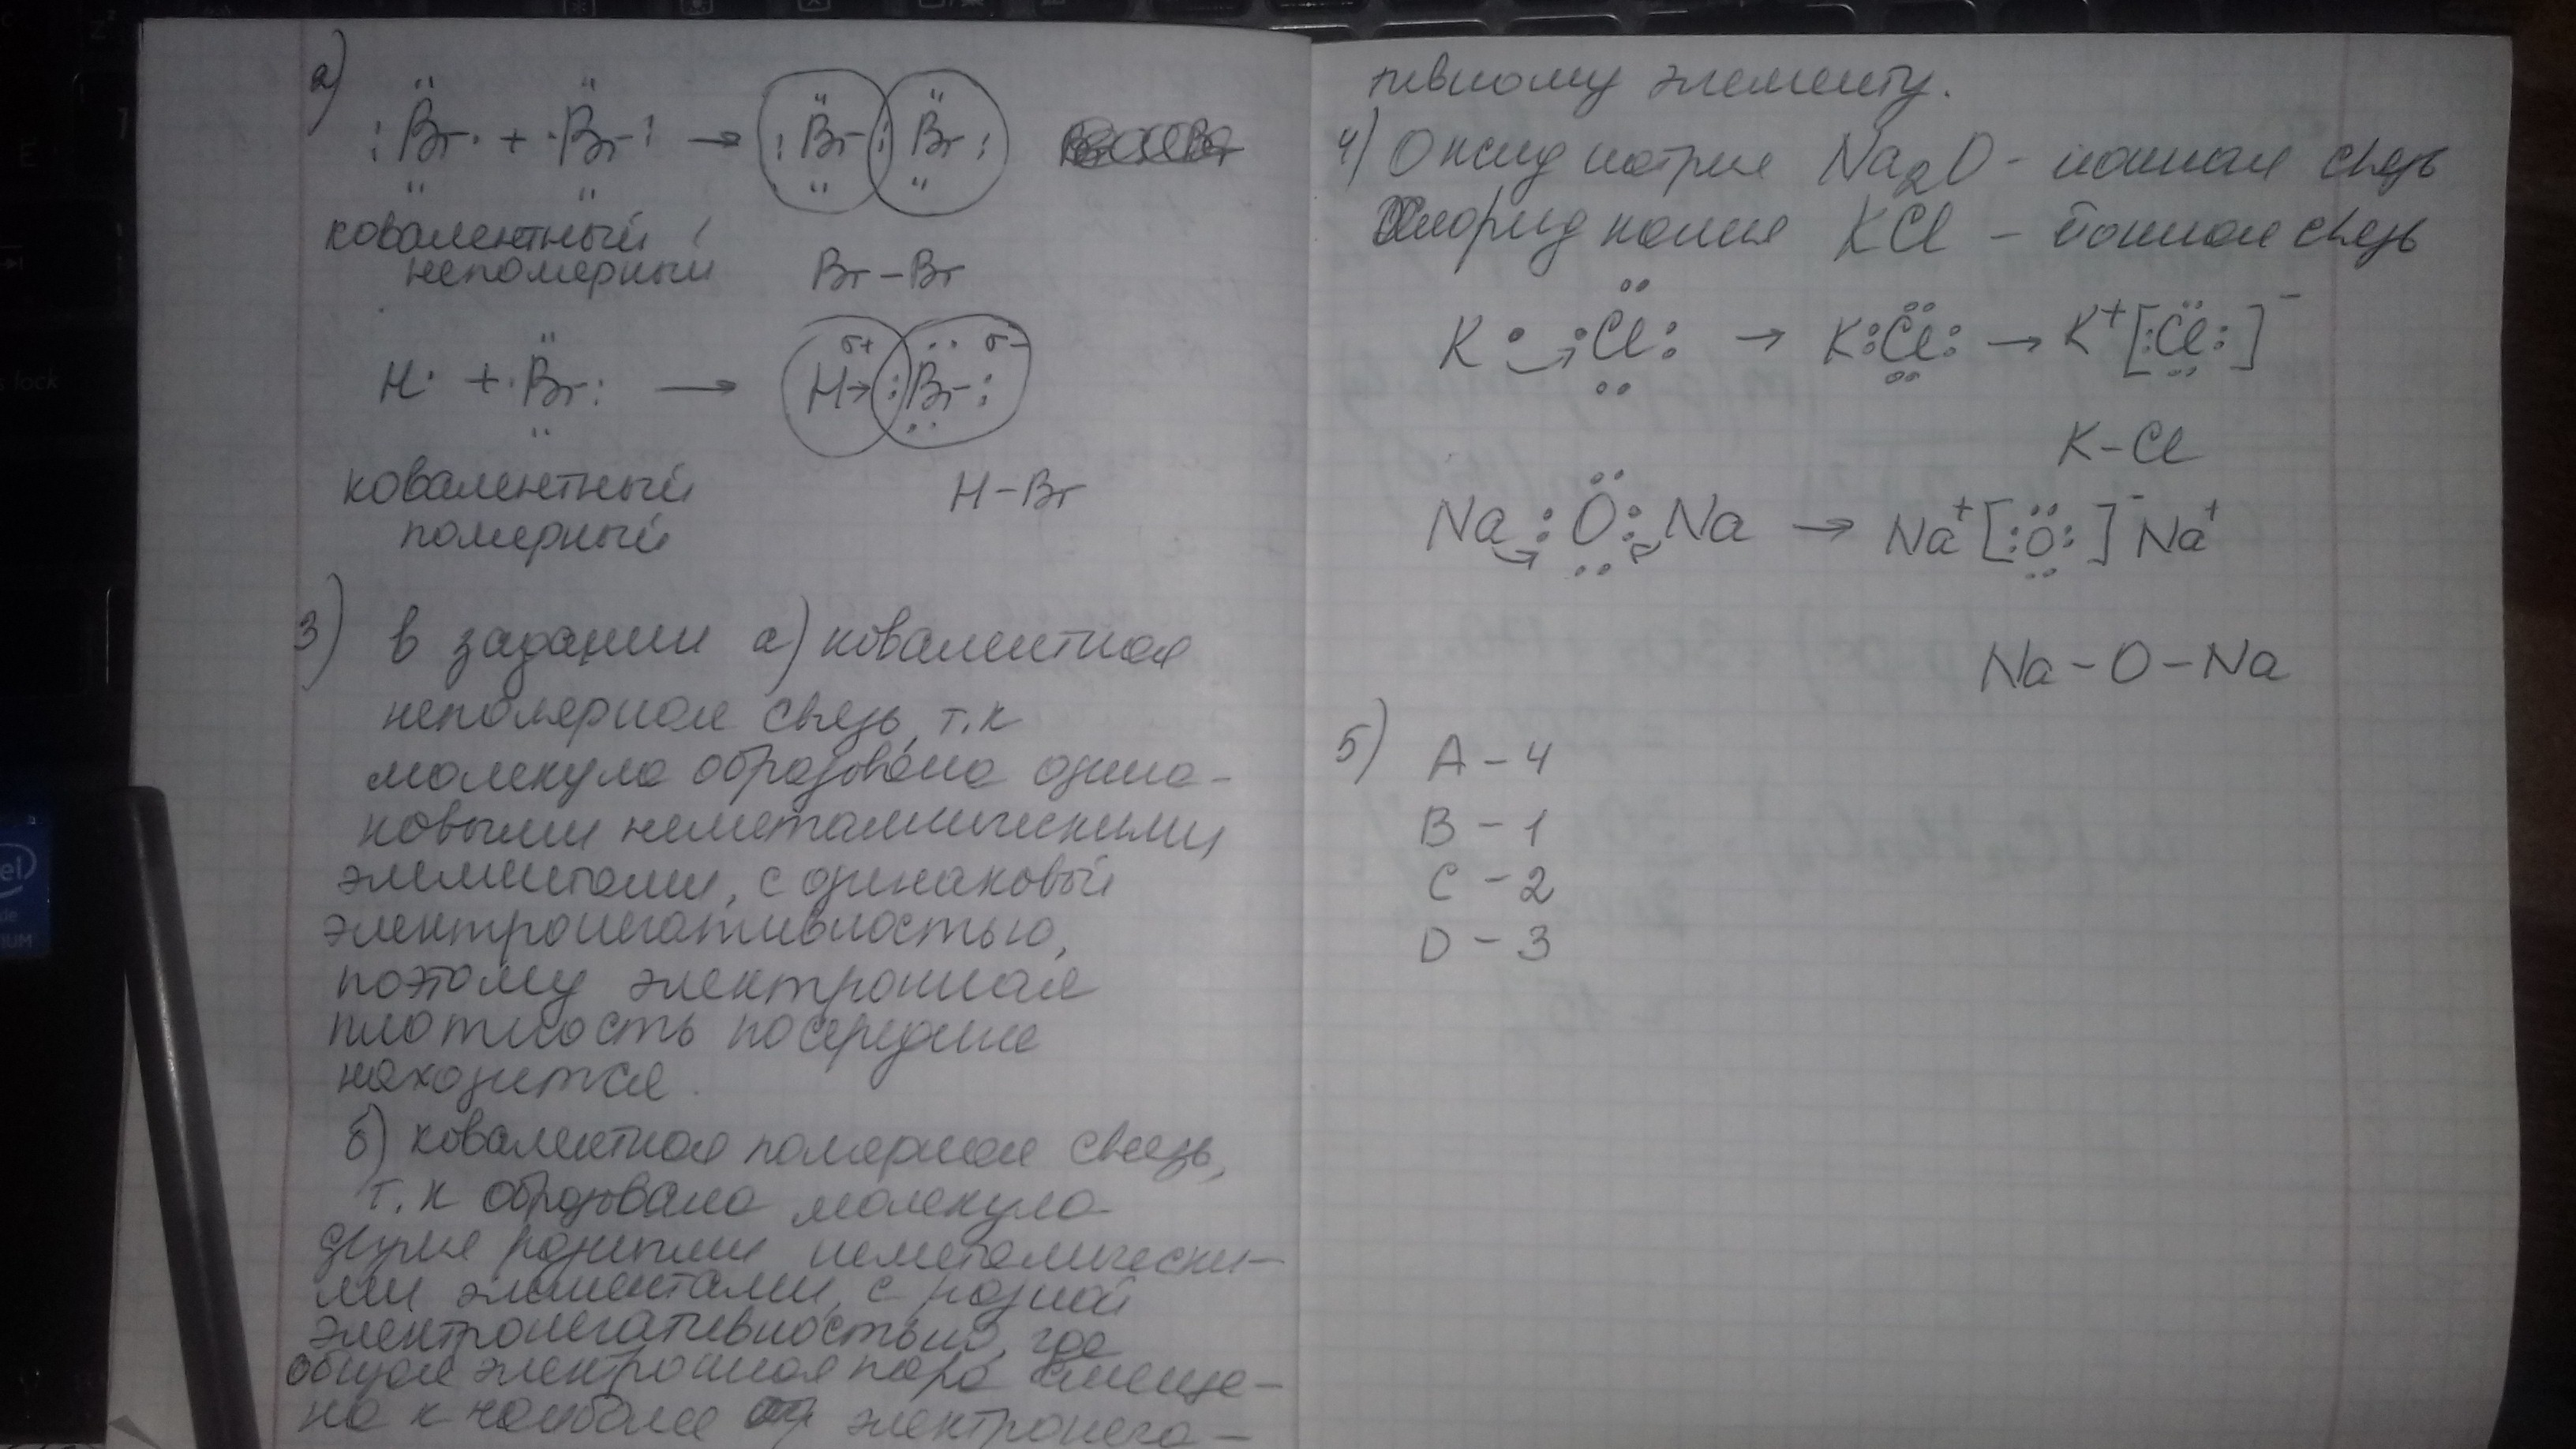 2)
:Br· + ·Br: → :Br:Br:
ковалентный
неполярный
Br – Br
H· + ·Br: → H→:Br:
σ+ σ–
ковалентный
полярный
H – Br
3) в задании а) ковалентная
неполярная связь, т.к
молекула образована одина-
ковыми неметаллическими
элементами, с одинаковой
электроотрицательностью,
поэтому электронная
плотность посередине
находится.
б) ковалентная полярная связь,
т.к образована молекула
двумя разными неметалически-
ми элементами, с разной
электронегативностью, где
общая электронная пара смеще-
на к наиболее электронега-
тивному элементу.
4) Оксид натрия Na₂O – ионная связь
Хлорид калия KCl – ионная связь
K· ·Cl: → K:Cl: → K⁺[:Cl:]⁻
K – Cl
Na : O : Na → Na⁺[:O:]⁻Na⁺
Na – O – Na
5) A – 4
B – 1
C – 2
D – 3